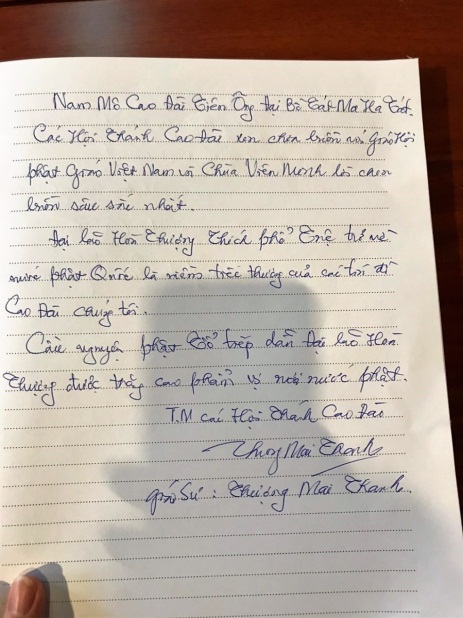 Nam Mô Cao Đài Tiên Ông Đại Bồ Tát Ma Ha Tát.
Các Hội Thánh Cao Đài xin chia buồn với Giáo Hội
phật giáo Việt Nam và Chùa Viên Minh lời chia
buồn sâu sắc nhất.
Đại lão Hòa Thượng Thích phổ Tuệ trở về
nước phật là niềm tiếc thương của các tín đồ
Cao Đài chúng tôi.
Cầu nguyện phật Tổ tiếp dẫn Đại lão Hòa
Thượng được thăng cao phẩm vị nơi nước phật.
T.M các Hội Thánh Cao Đài
Thượng Mai Thanh
giáo Sư : Thượng Mai Thanh